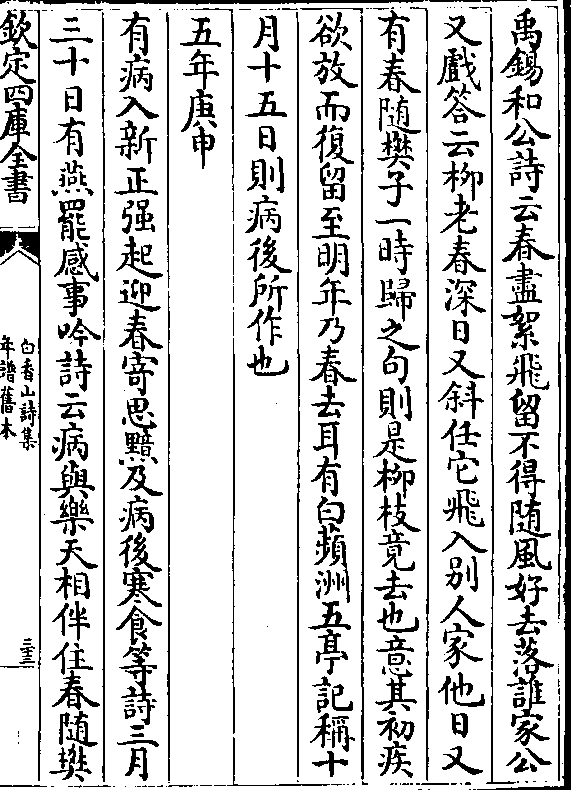 禹錫和公詩云春盡絮飛留不得随風好去落誰家公
又戲答云柳老春深日又斜任它飛入别人家他日又
有春随樊子一時歸之句則是柳枝竟去也意其初疾
欲放而復留至明年乃春去耳有白蘋洲五亭記稱十
月十五日則病後所作也
五年庚申
有病入新正强起迎春寄思黯及病後寒食等詩三月
三十日有燕罷感事吟詩云病與樂天相伴住春随樊
欽定四庫全書
白香山詩集
年譜舊本
三三